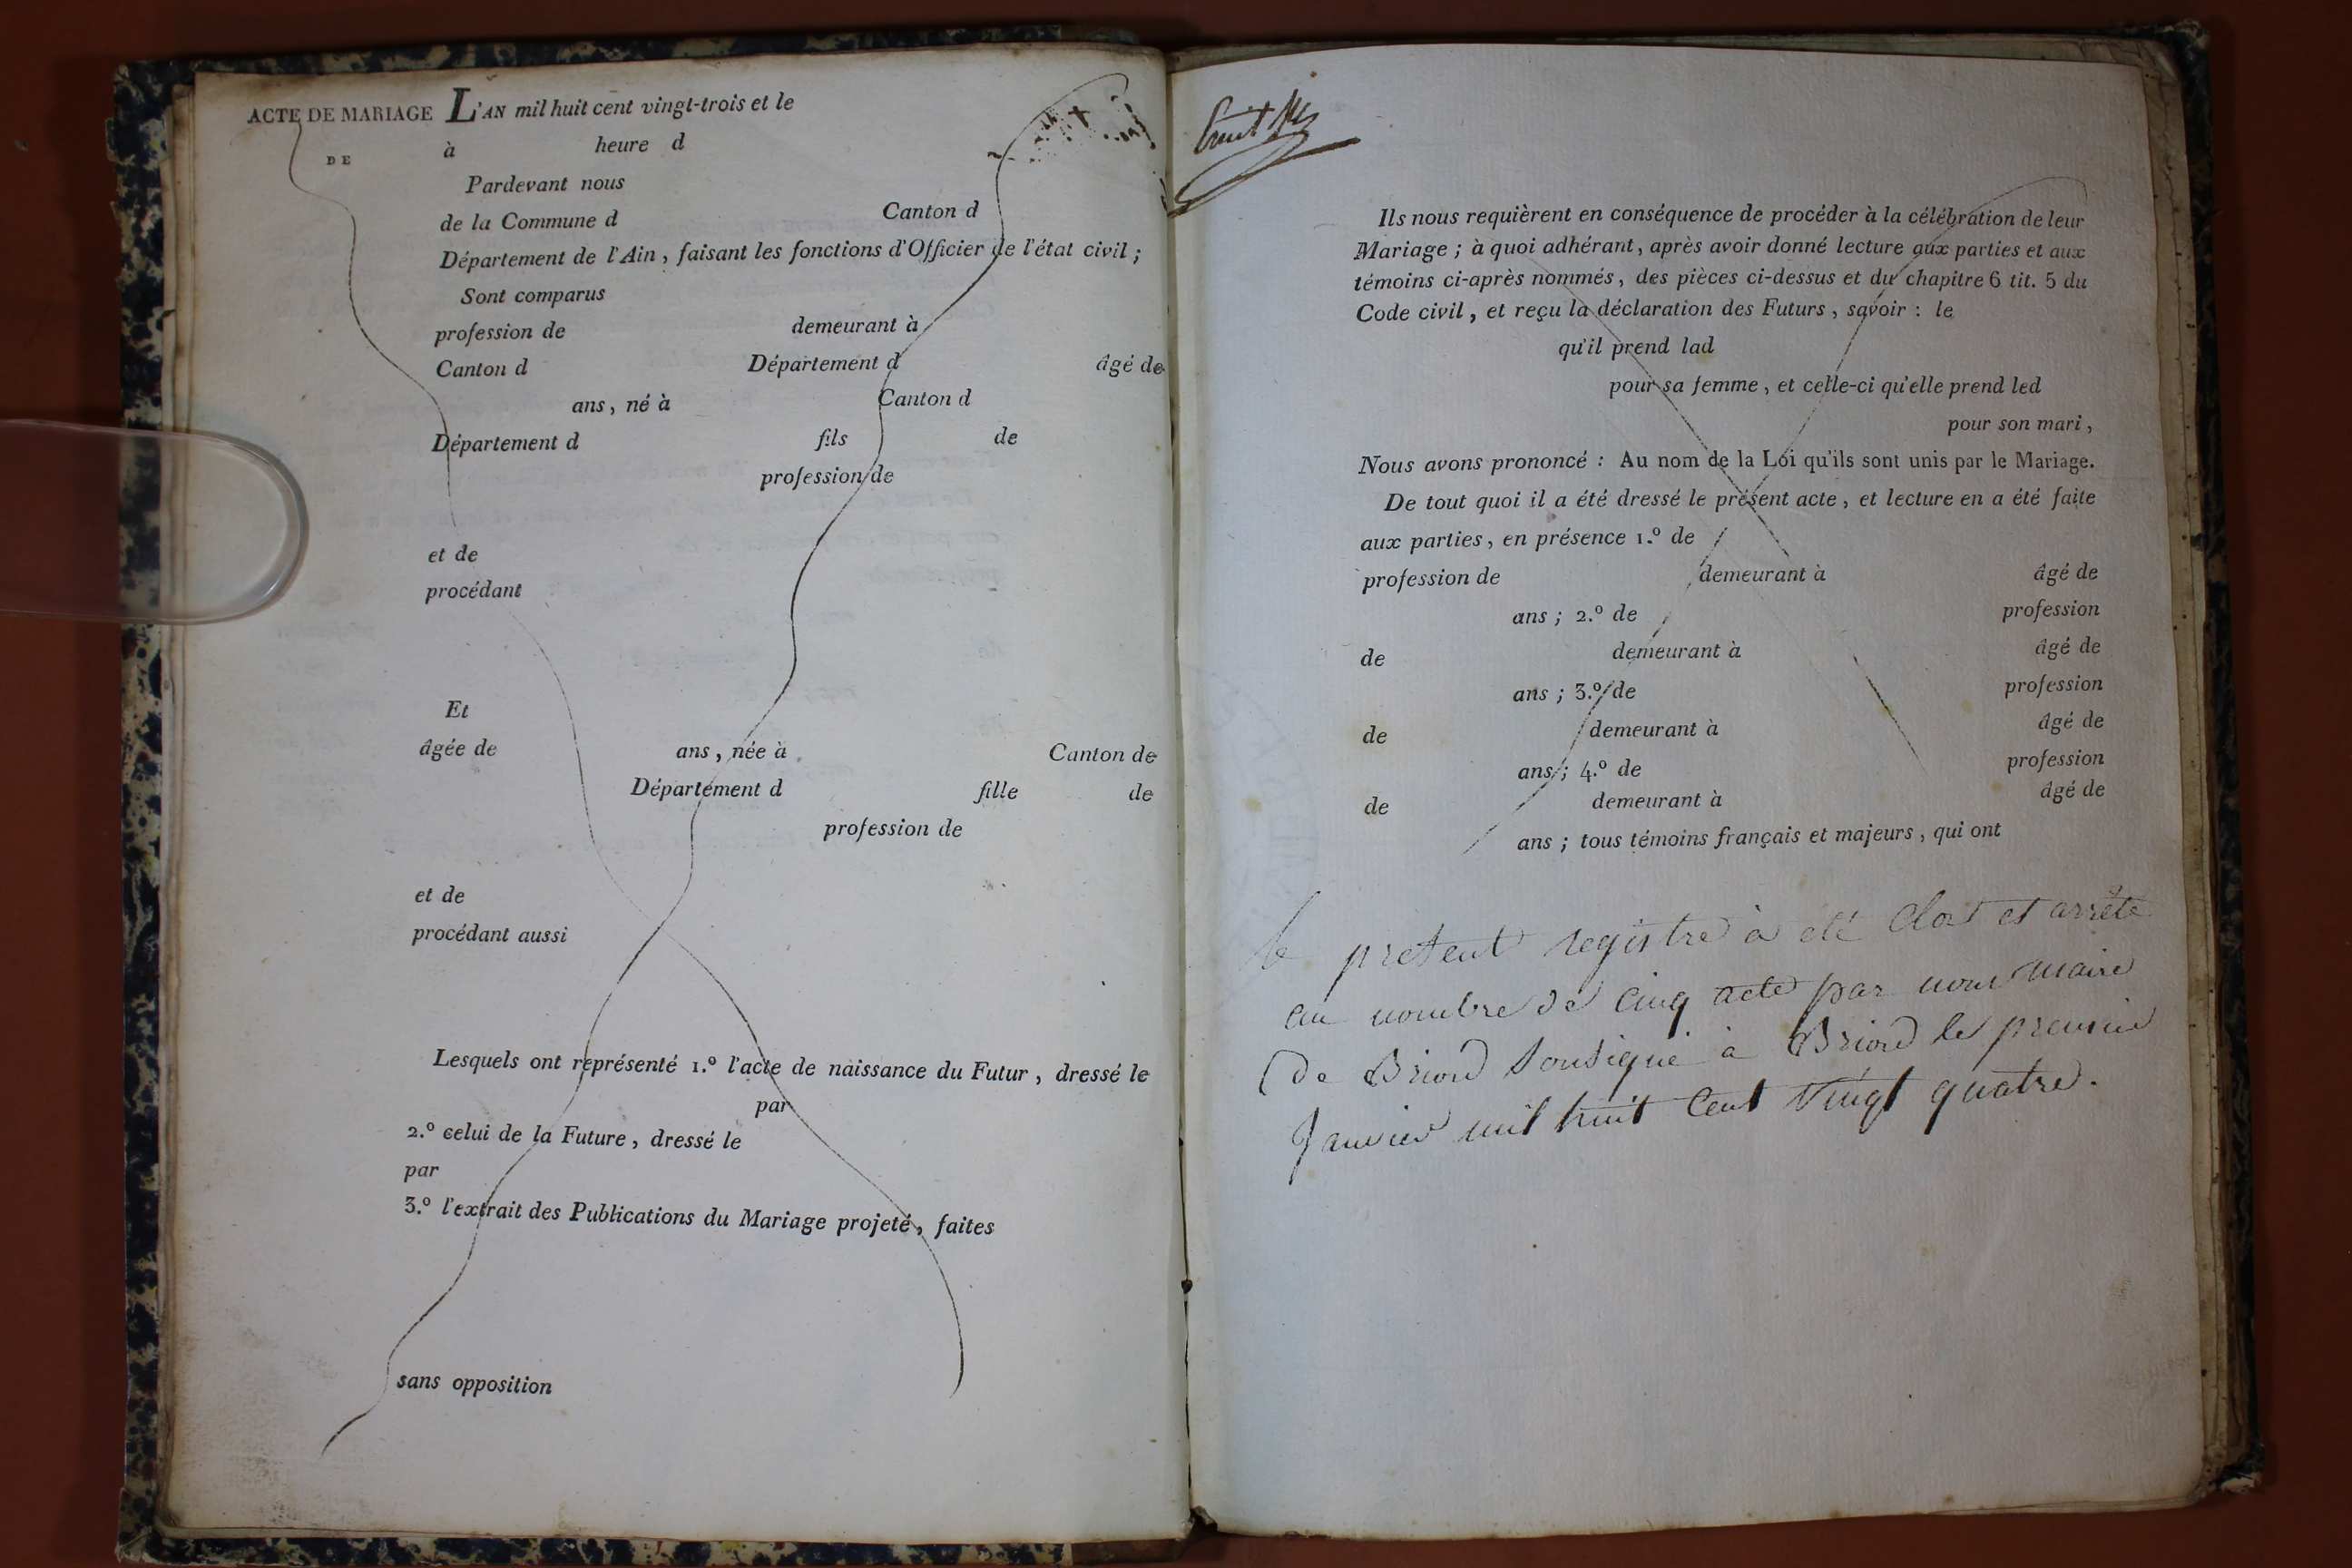 ACTE DE MARIAGE
DE
L'AN mil huit cent vingt-trois et le
à heure d
Pardevant nous
de la Commune d Canton d
Département de l'Ain, faisant les fonctions d'Officier de l'état civil ;
Sont comparus
profession de demeurant à
Canton d Département d âgé de
ans, né à Canton d
Département d fils de
profession de
et de
procédant
Et
âgée de ans, née à Canton de
Département d fille de
profession de
et de
procédant aussi
Lesquels ont représenté 1.º l'acte de naissance du Futur, dressé le
par
2.º celui de la Future, dressé le
par
3.º l'extrait des Publications du Mariage projeté, faites
sans opposition
Ils nous requièrent en conséquence de procéder à la célébration de leur
Mariage ; à quoi adhérant, après avoir donné lecture aux parties et aux
témoins ci-après nommés, des pièces ci-dessus et du chapitre 6 tit. 5 du
Code civil, et reçu la déclaration des Futurs, savoir : le
qu'il prend lad
pour sa femme, et celle-ci qu'elle prend led
pour son mari,
Nous avons prononcé : Au nom de la Loi qu'ils sont unis par le Mariage.
De tout quoi il a été dressé le présent acte, et lecture en a été faite
aux parties, en présence 1.º de
profession de demeurant à âgé de
ans ; 2.º de profession
de demeurant à âgé de
ans ; 3.º de profession
de demeurant à âgé de
ans ; 4.º de profession
de demeurant à âgé de
ans ; tous témoins français et majeurs, qui ont
le present registre à eté Clos et arrété
au nombre de Cinq acte par nous maire
de Briord Sousigné à Briord le premier
Janvier mil huit Cent Vingt quatre.